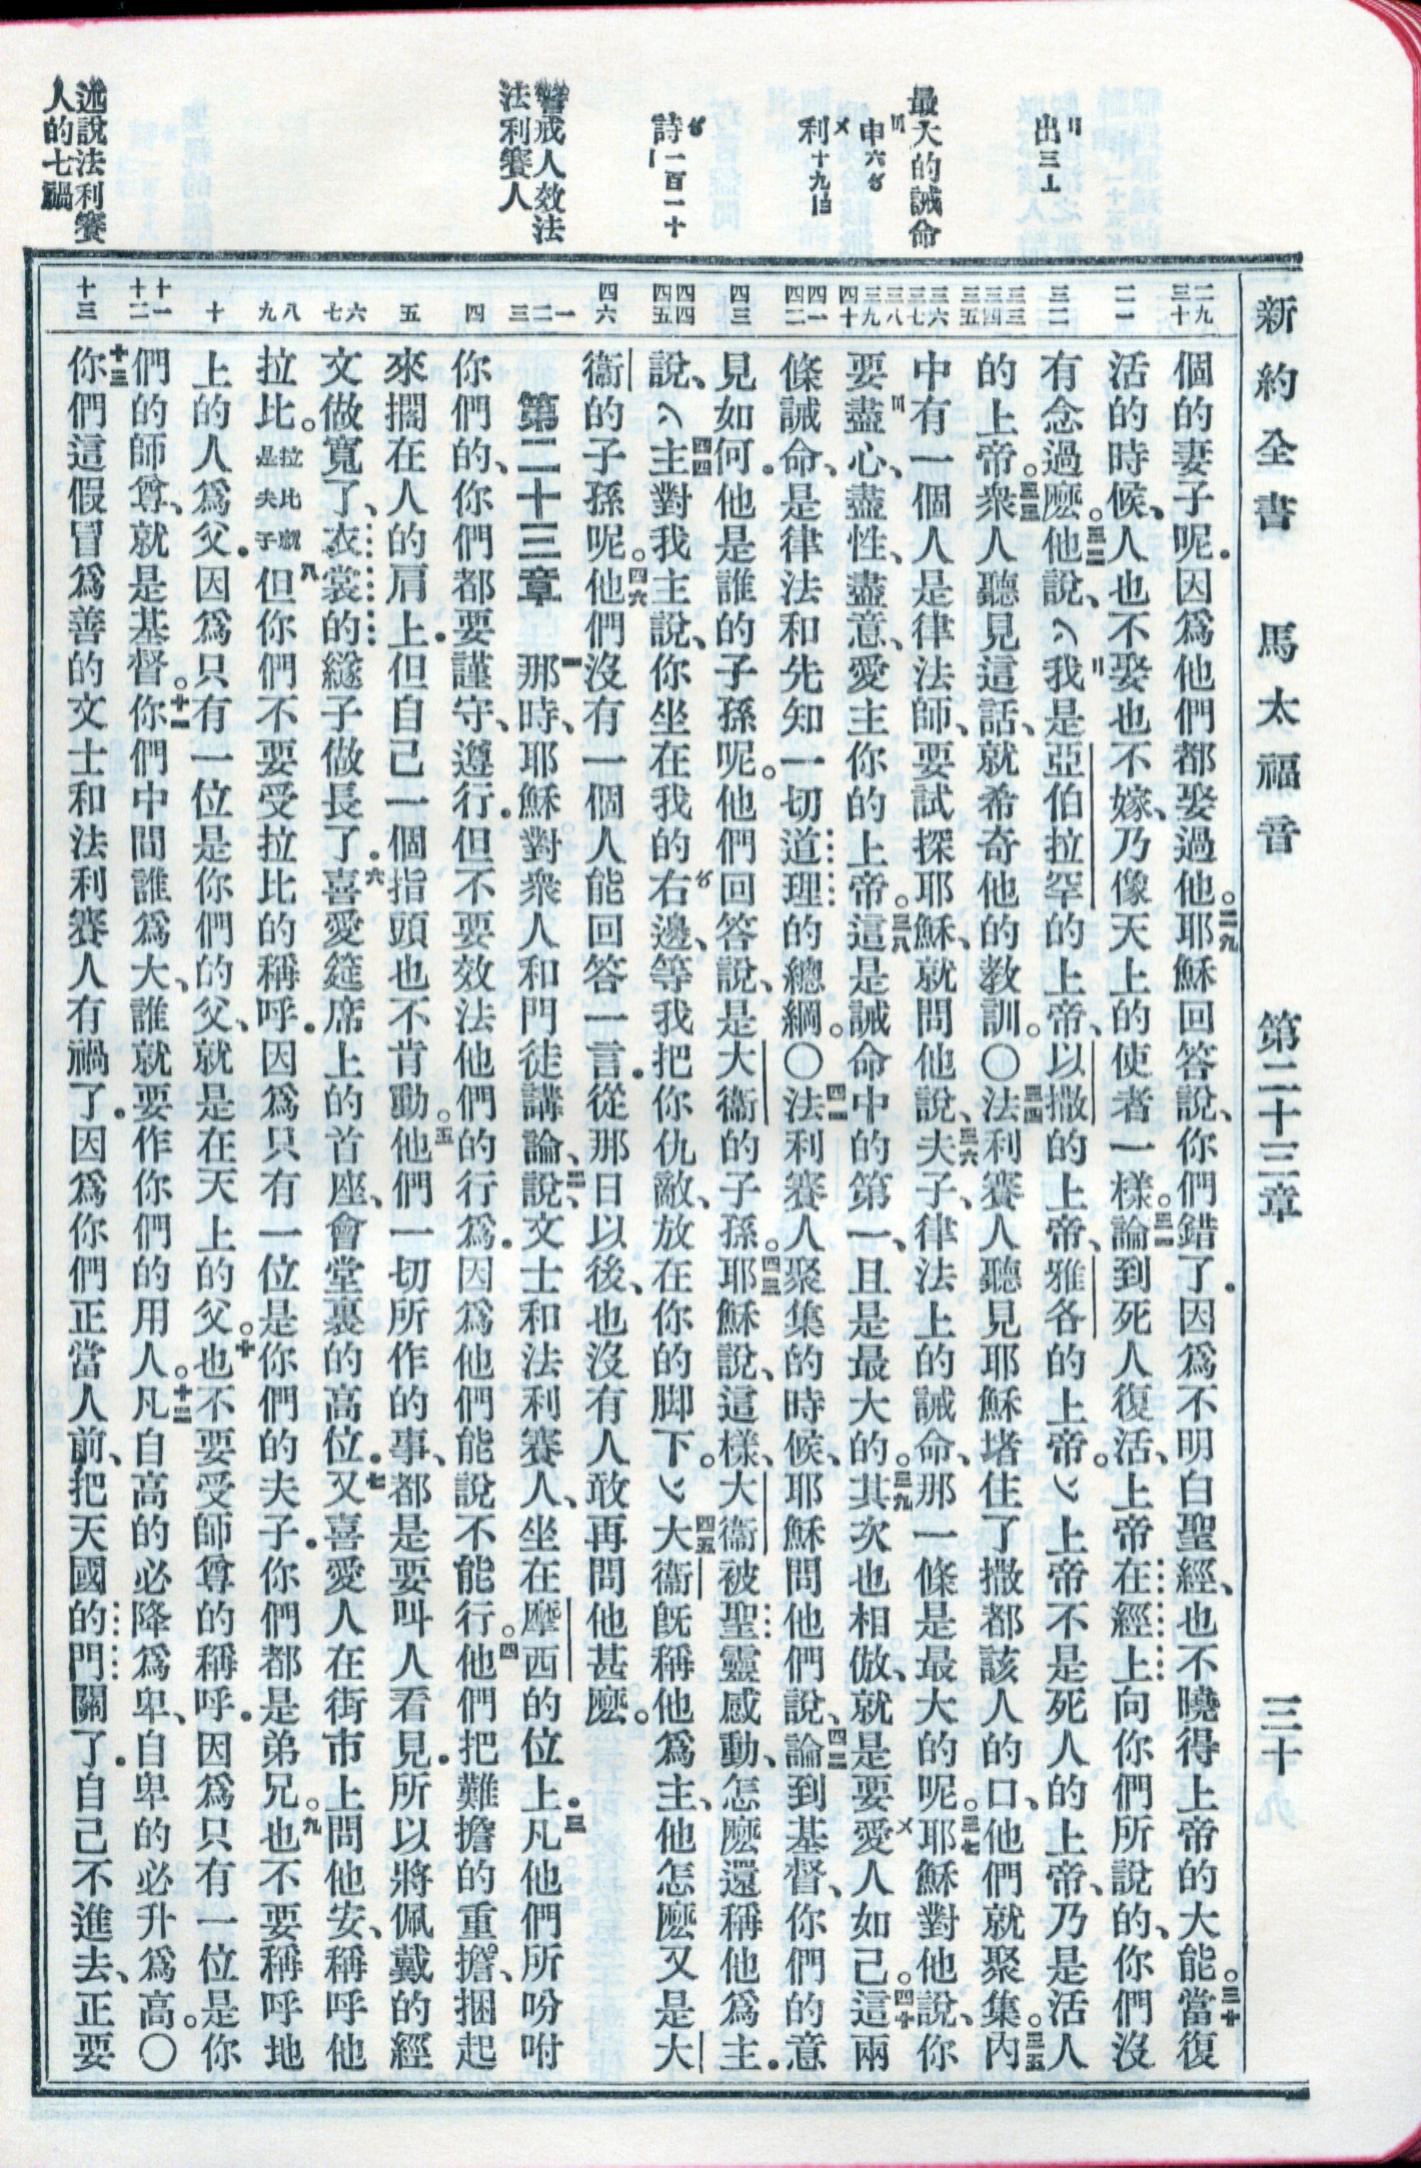 新約全書 馬太福音 第二十三章 三十
出三〨
最大的誡命
申六〥
利十九〸
詩一百一十
警戒人效法
法利賽人
述說法利賽
人的七禍
二九 三十
三一
三二
三三 三四 三五
三六 三七
三八 三九 四十
四一 四二
四三
四四 四五
四六
一 二 三
四
五
六 七
八 九
十
十一 十二
十三
個的妻子呢．因爲他們都娶過他。二九耶穌回答說、你們錯了．因爲不明白聖經、也不曉得上帝的大能。三十當復
活的時候、人也不娶也不嫁、乃像天上的使者一樣。三一論到死人復活、上帝在經上向你們所說的、你們沒
有念過麽。三二他說、〣我是亞伯拉罕的上帝、以撒的上帝、雅各的上帝。上帝不是死人的上帝、乃是活人
的上帝。三三衆人聽見這話、就希奇他的教訓。〇三四法利賽人聽見耶穌堵住了撒都該人的口、他們就聚集。三五內
中有一個人是律法師、要試探耶穌、就問他說、三六夫子、律法上的誡命、那一條是最大的呢。三七耶穌對他說、你
要〣盡心、盡性、盡意、愛主你的上帝。三八這是誡命中的第一、且是最大的。三九其次也相倣、就是要〤愛人如己。四十這兩
條誡命、是律法和先知一切道理的總綱。〇四一法利賽人聚集的時候、耶穌問他們說、四二論到基督、你們的意
見如何．他是誰的子孫呢。他們回答說、是大衞的子孫。四三耶穌說、這樣、大衞被聖靈感動、怎麽還稱他爲主．
說、四四主對我主說、你坐在我的右〥邊、等我把你仇敵、放在你的脚下。四五大衞旣稱他爲主、他怎麽又是大
衞的子孫呢。四六他們沒有一個人能回答一言．從那日以後、也沒有人敢再問他甚麽。
第二十三章 一那時、耶穌對衆人和門徒講論、二說、文士和法利賽人、坐在摩西的位上．三凡他們所吩咐
你們的、你們都要謹守、遵行．但不要效法他們的行爲．因爲他們能說不能行。四他們把難擔的重擔、捆起
來擱在人的肩上．但自己一個指頭也不肯動。五他們一切所作的事、都是要叫人看見．所以將佩戴的經
文做寬了、衣裳的繸子做長了．六喜愛筵席上的首座、會堂裏的高位．七又喜愛人在街市上問他安、稱呼他
拉比。拉比就是夫子八但你們不要受拉比的稱呼．因爲只有一位是你們的夫子．你們都是弟兄。九也不要稱呼地
上的人爲父．因爲只有一位是你們的父、就是在天上的父。十也不要受師尊的稱呼．因爲只有一位是你
們的師尊、就是基督。十一你們中間誰爲大、誰就要作你們的用人。十二凡自高的必降爲卑、自卑的必升爲高。〇
十三你們這假冒爲善的文士和法利賽人有禍了．因爲你們正當人前、把天國的門關了．自己不進去、正要